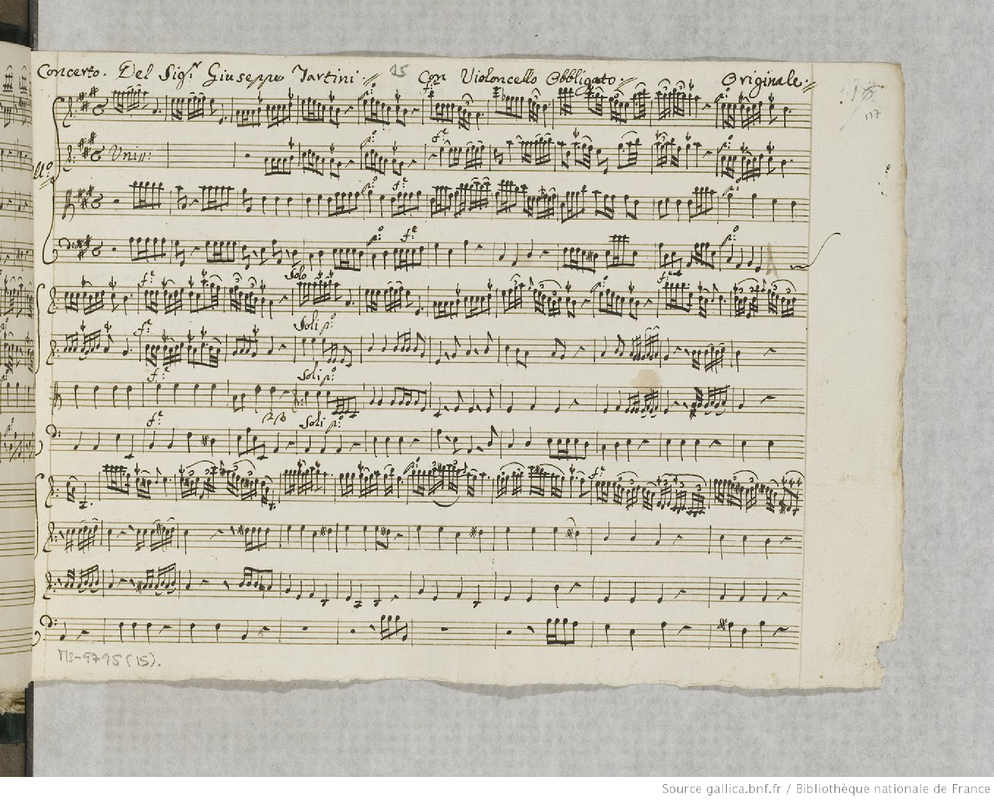 Concerto. Del Sigr. Giuseppe Tartini. 15 Con Violoncello Obbligato. Originale.
137
Unis:
p.
f.
p.
f.
p.
f.
f. Solo
f. Soli p.
f. Soli p.
f. Soli p.
f.
Ms-9795 (15).
Source gallica.bnf.fr / Bibliothèque nationale de France